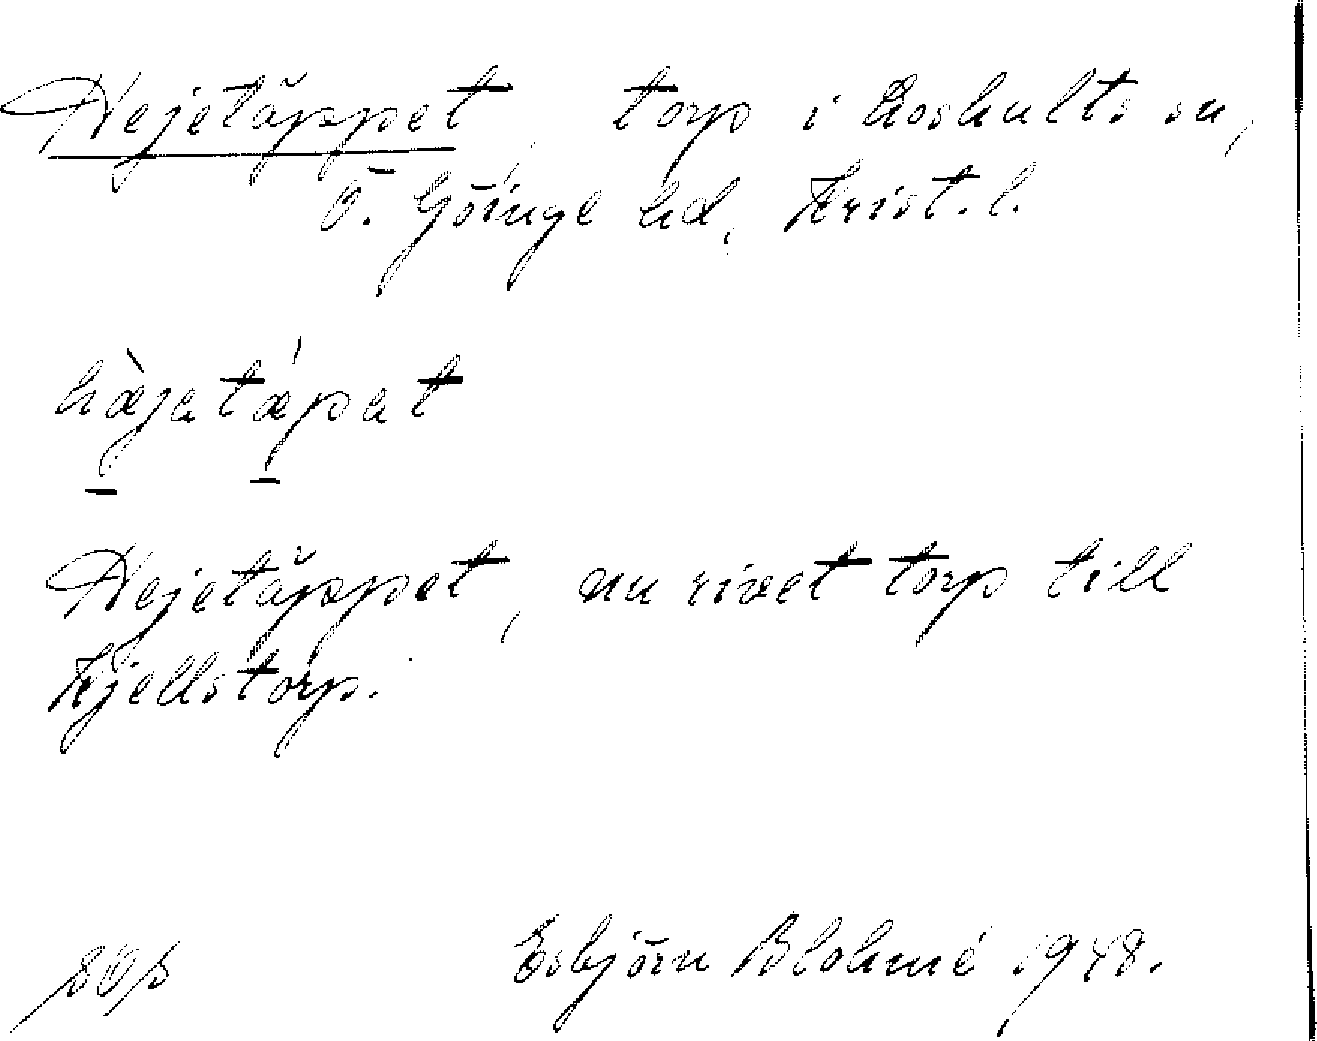 Hejetäppet, torp i Loshults sn,
Ö. Göinge hd, Krist. l.
hæ̀jatǽpat
Hejetäppet, nu rivet torp till
Kjellstorp.
Esbjörn Blohmé 1948.